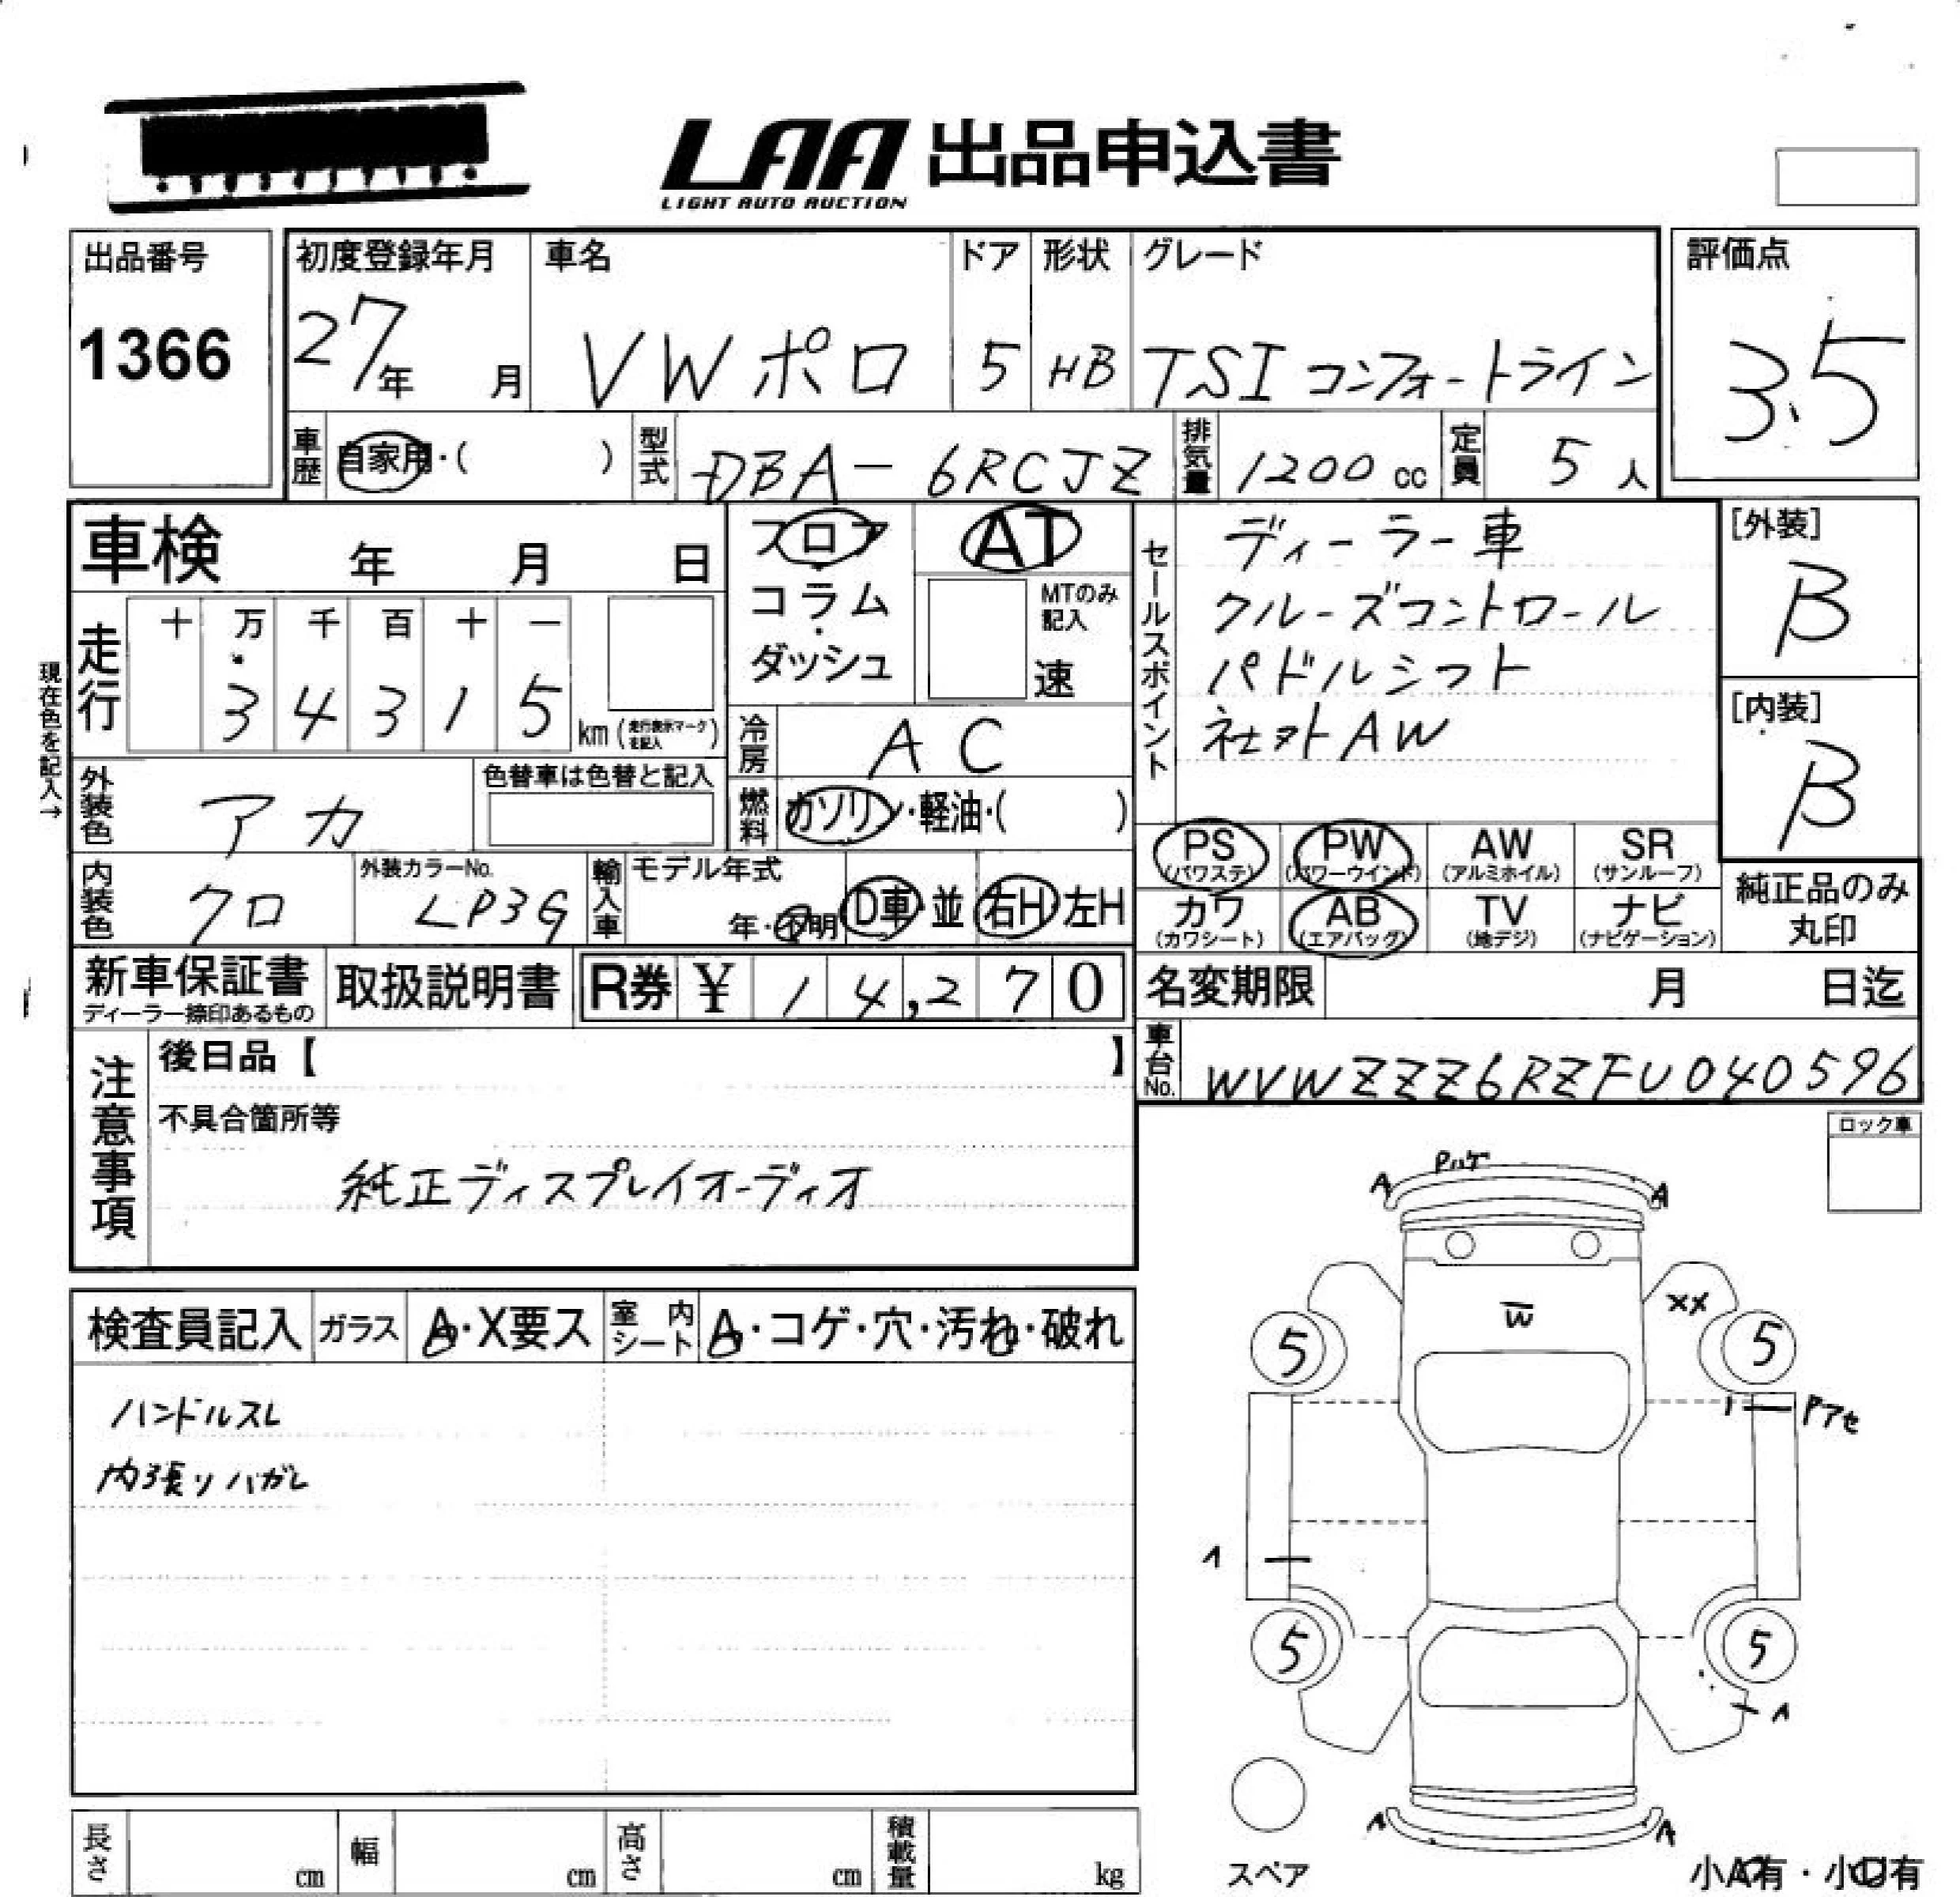 LAA 出品申込書
LIGHT AUTO AUCTION
出品番号
1366
初度登録年月
27年 月
車名
VW ポロ
ドア
5
形状
HB
グレード
TSI コンフォートライン
評価点
3.5
車歴 自家用・( )
型式 DBA-6RCJZ
排気量 1200 cc
定員 5 人
車検 年 月 日
走行
十 万 千 百 十 一
3 4 3 1 5 km (走行表示マークを記入)
現在色を記入→
外装色 アカ
色替車は色替と記入
内装色 クロ
外装カラーNo.
LP3G
フロア
コラム
ダッシュ
AT
MTのみ記入
速
冷房 AC
燃料 ガソリン・軽油・( )
輸入車 モデル年式
年・不明 D車・並 右H・左H
セールスポイント
ディーラー車
クルーズコントロール
パドルシフト
社外AW
[外装]
B
[内装]
B
PS (パワステ) PW (パワーウインド) AW (アルミホイル) SR (サンルーフ)
カワ (カワシート) AB (エアバッグ) TV (地デジ) ナビ (ナビゲーション)
純正品のみ
丸印
新車保証書
ディーラー捺印あるもの
取扱説明書
R券 ¥ 14,270
名変期限 月 日迄
車台No. WVWZZZ6RZFU040596
注意事項
後日品【 】
不具合箇所等
純正ディスプレイオーディオ
ロック車
検査員記入 ガラス A・X要ス 室内シート A・コゲ・穴・汚れ・破れ
ハンドルスレ
内張リハガレ
Pハゲ
A A
W
XX
5 5
Pアセ
1
5 5
A A
スペア
小A有・小U有
長さ cm 幅 cm 高さ cm 積載量 kg